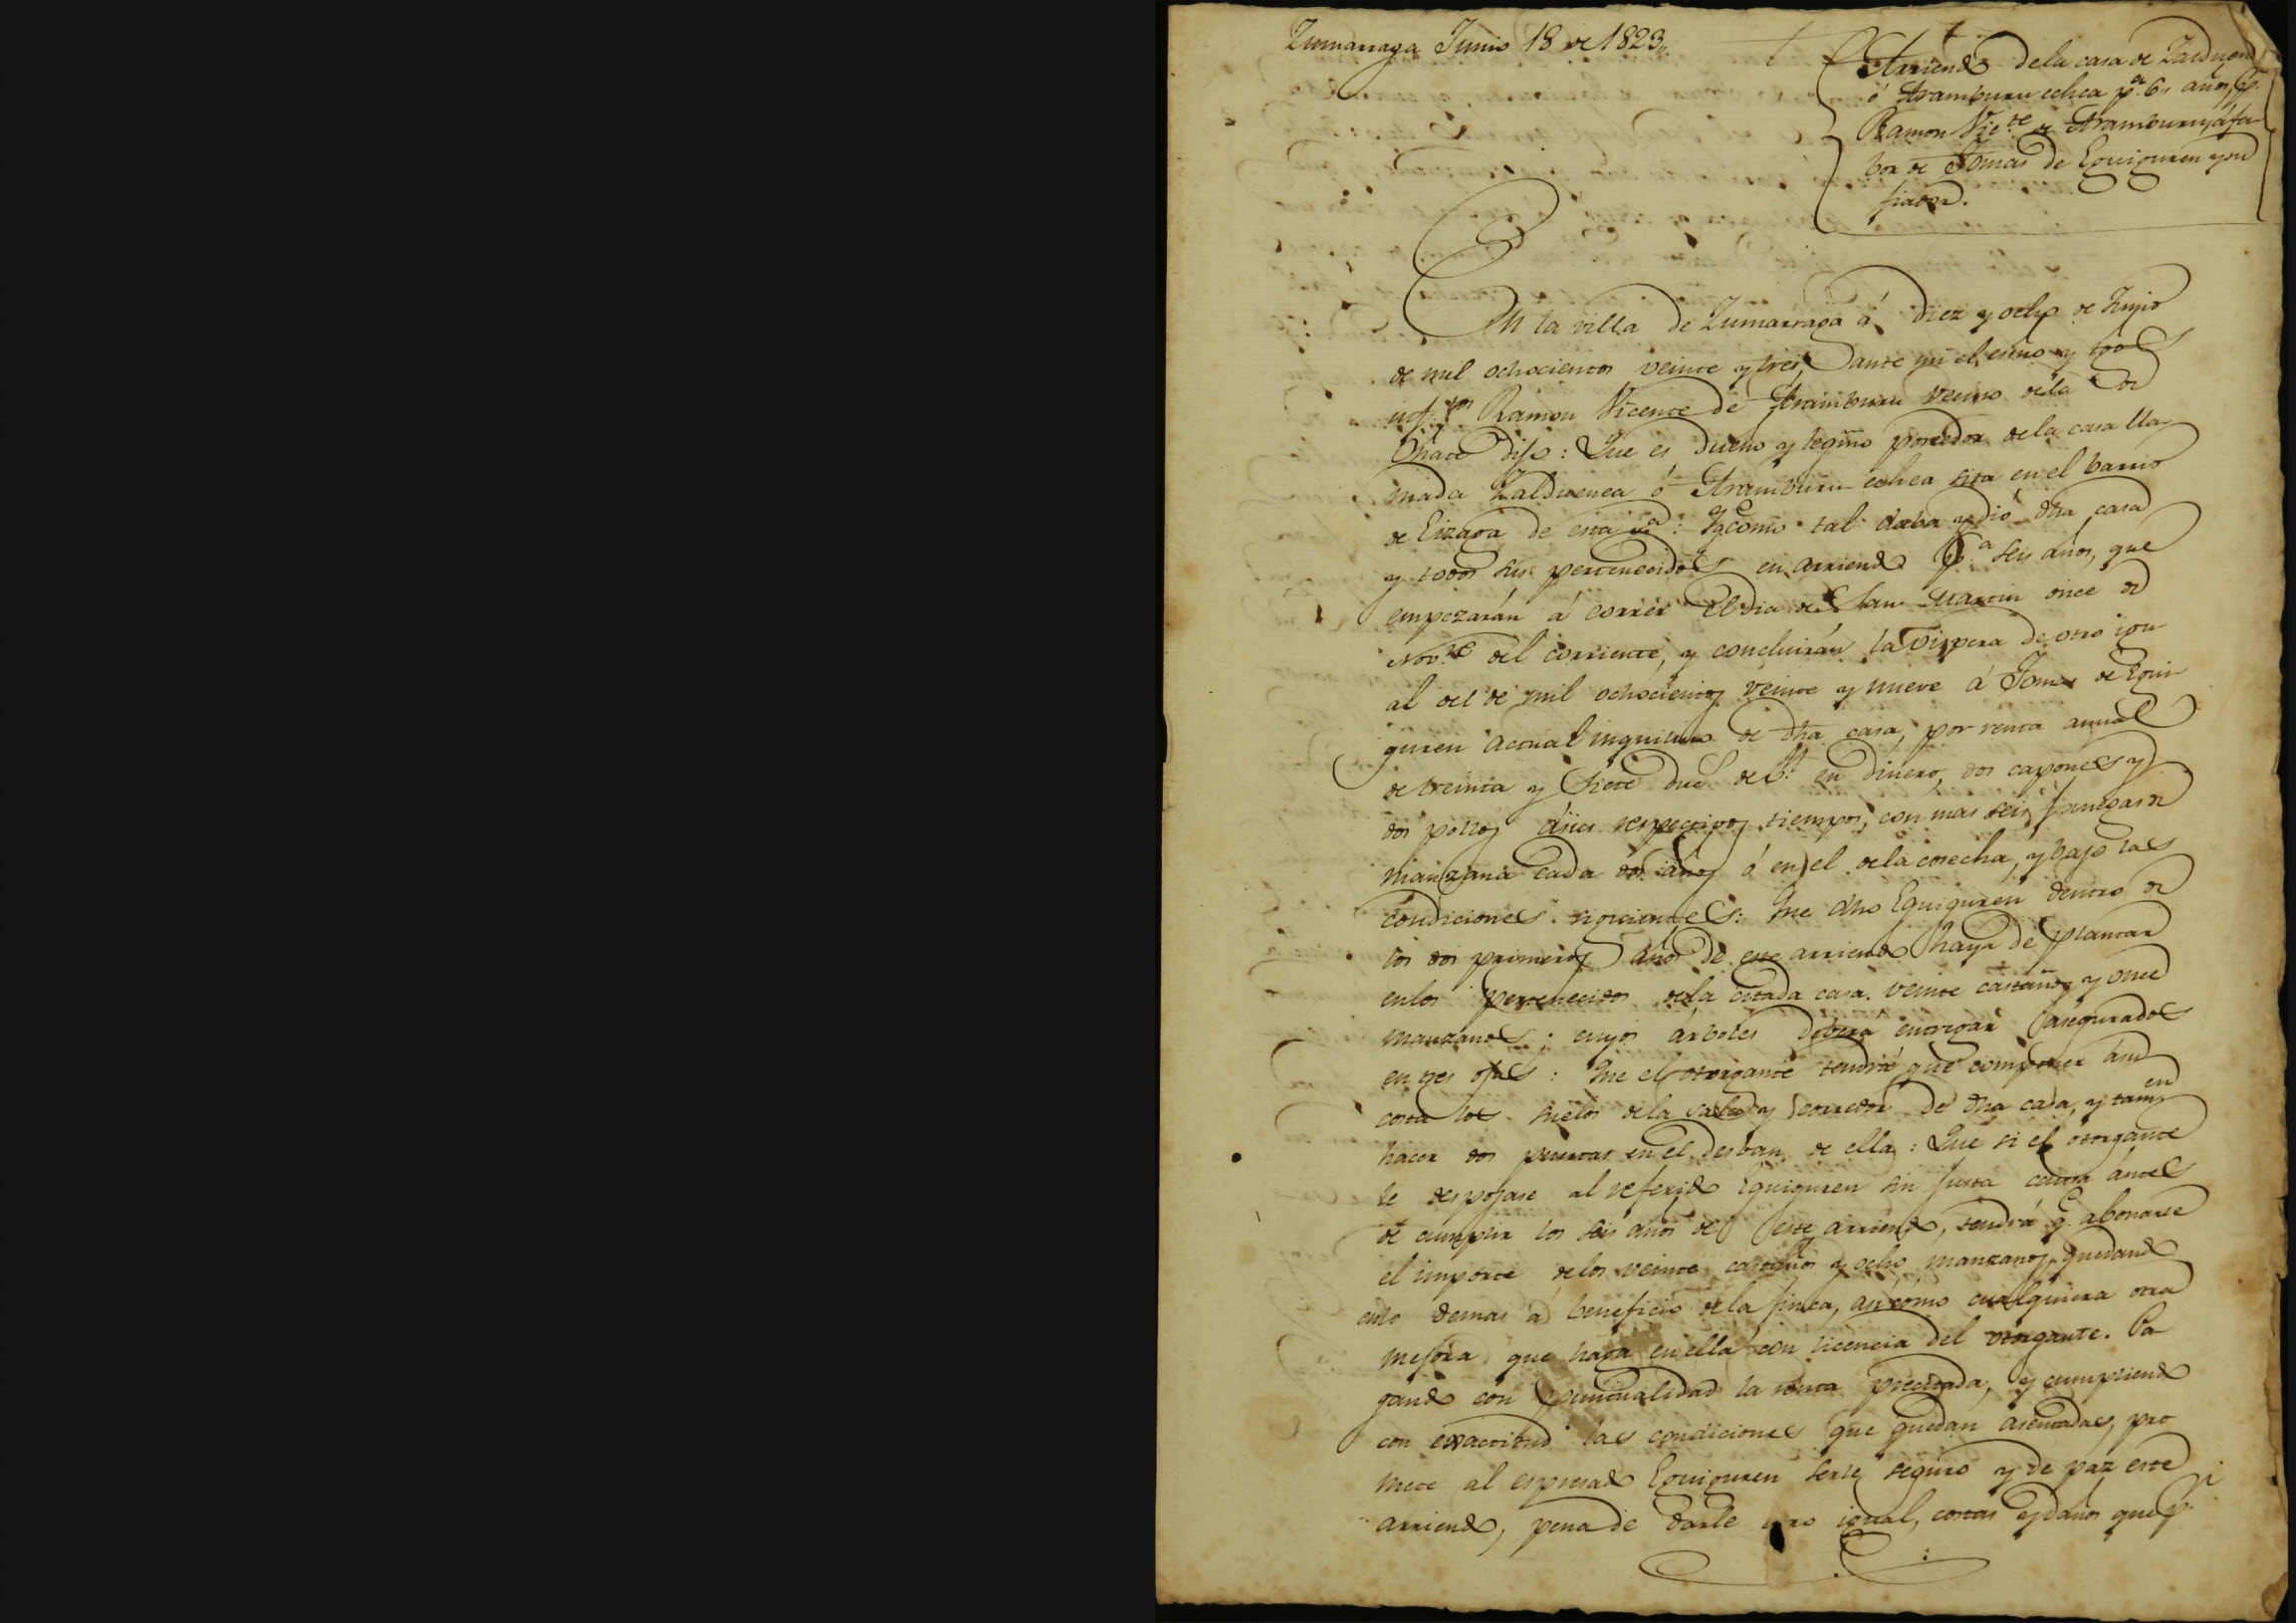 Zumarraga Junio 18 de 1823,,
Arriendo dela casa de Zalduen
ó Aramburu echea p.a 6,, años, p.r
Ramon Vic.te de Aramburu, á fa
bor de Tomas de Eguiguren y su
fiador.
En la villa de Zumarraga á diez y ocho de Junio
de mil ochocientos veinte y tres, ante mi el esno y tgos
inf.tos Ramon Vicente de Aramburu vecino dela de
Oñate dijo: Que es dueño y legmo poseedor dela casa lla
mada Zalduenea ó Aramburu echea sita en el barrio
de Eizaga de esta v.a: Y como tal daba y dió dha casa
y todos sus pertenecidos en arriendo p.a seis años, que
empezarán á correr el dia de San Martin once de
Nov.re del corriente, y concluirán la vispera de otro igu
al del de mil ochocientos veinte y nueve á Tomas de Egui
guren actual inquilino de dha casa, por renta anual
de treinta y siete duc.s de v.n en dinero, dos capones y
dos pollos á sus respectivos tiempos, con mas seis fanegas de
manzana cada dos años ó en el dela cosecha, y bajo las
condiciones siguientes: Que dho Eguiguren dentro de
los dos primeros años de este arriendo haya de plantar
enlos pertenecidos dela citada casa veinte castaños y once
manzanos; cuyos árboles deberá entregar asegurados
en tres ojas: Que el otorgante tendrá que componer á su
costa los suelos dela sala y corredor de dha casa, y tam
en
hacer dos puertas en el desban de ella: Que si el otorgante
le despojase al referido Eguiguren sin justa causa antes
de cumplir los seis años de este arriendo, tendrá q. abonarse
el importe delos veinte castaños y ocho manzanos, quedando
enlo demas á beneficio dela finca, asi como cualquiera otra
mejora que haga en ella con licencia del otorgante. Pa
gando con puntualidad la renta precitada, y cumpliendo
con exactitud las condiciones que quedan asentadas, pro
mete al espresado Eguiguren serle seguro y de paz este
arriendo, pena de darle otro igual, costas y daños que p.r